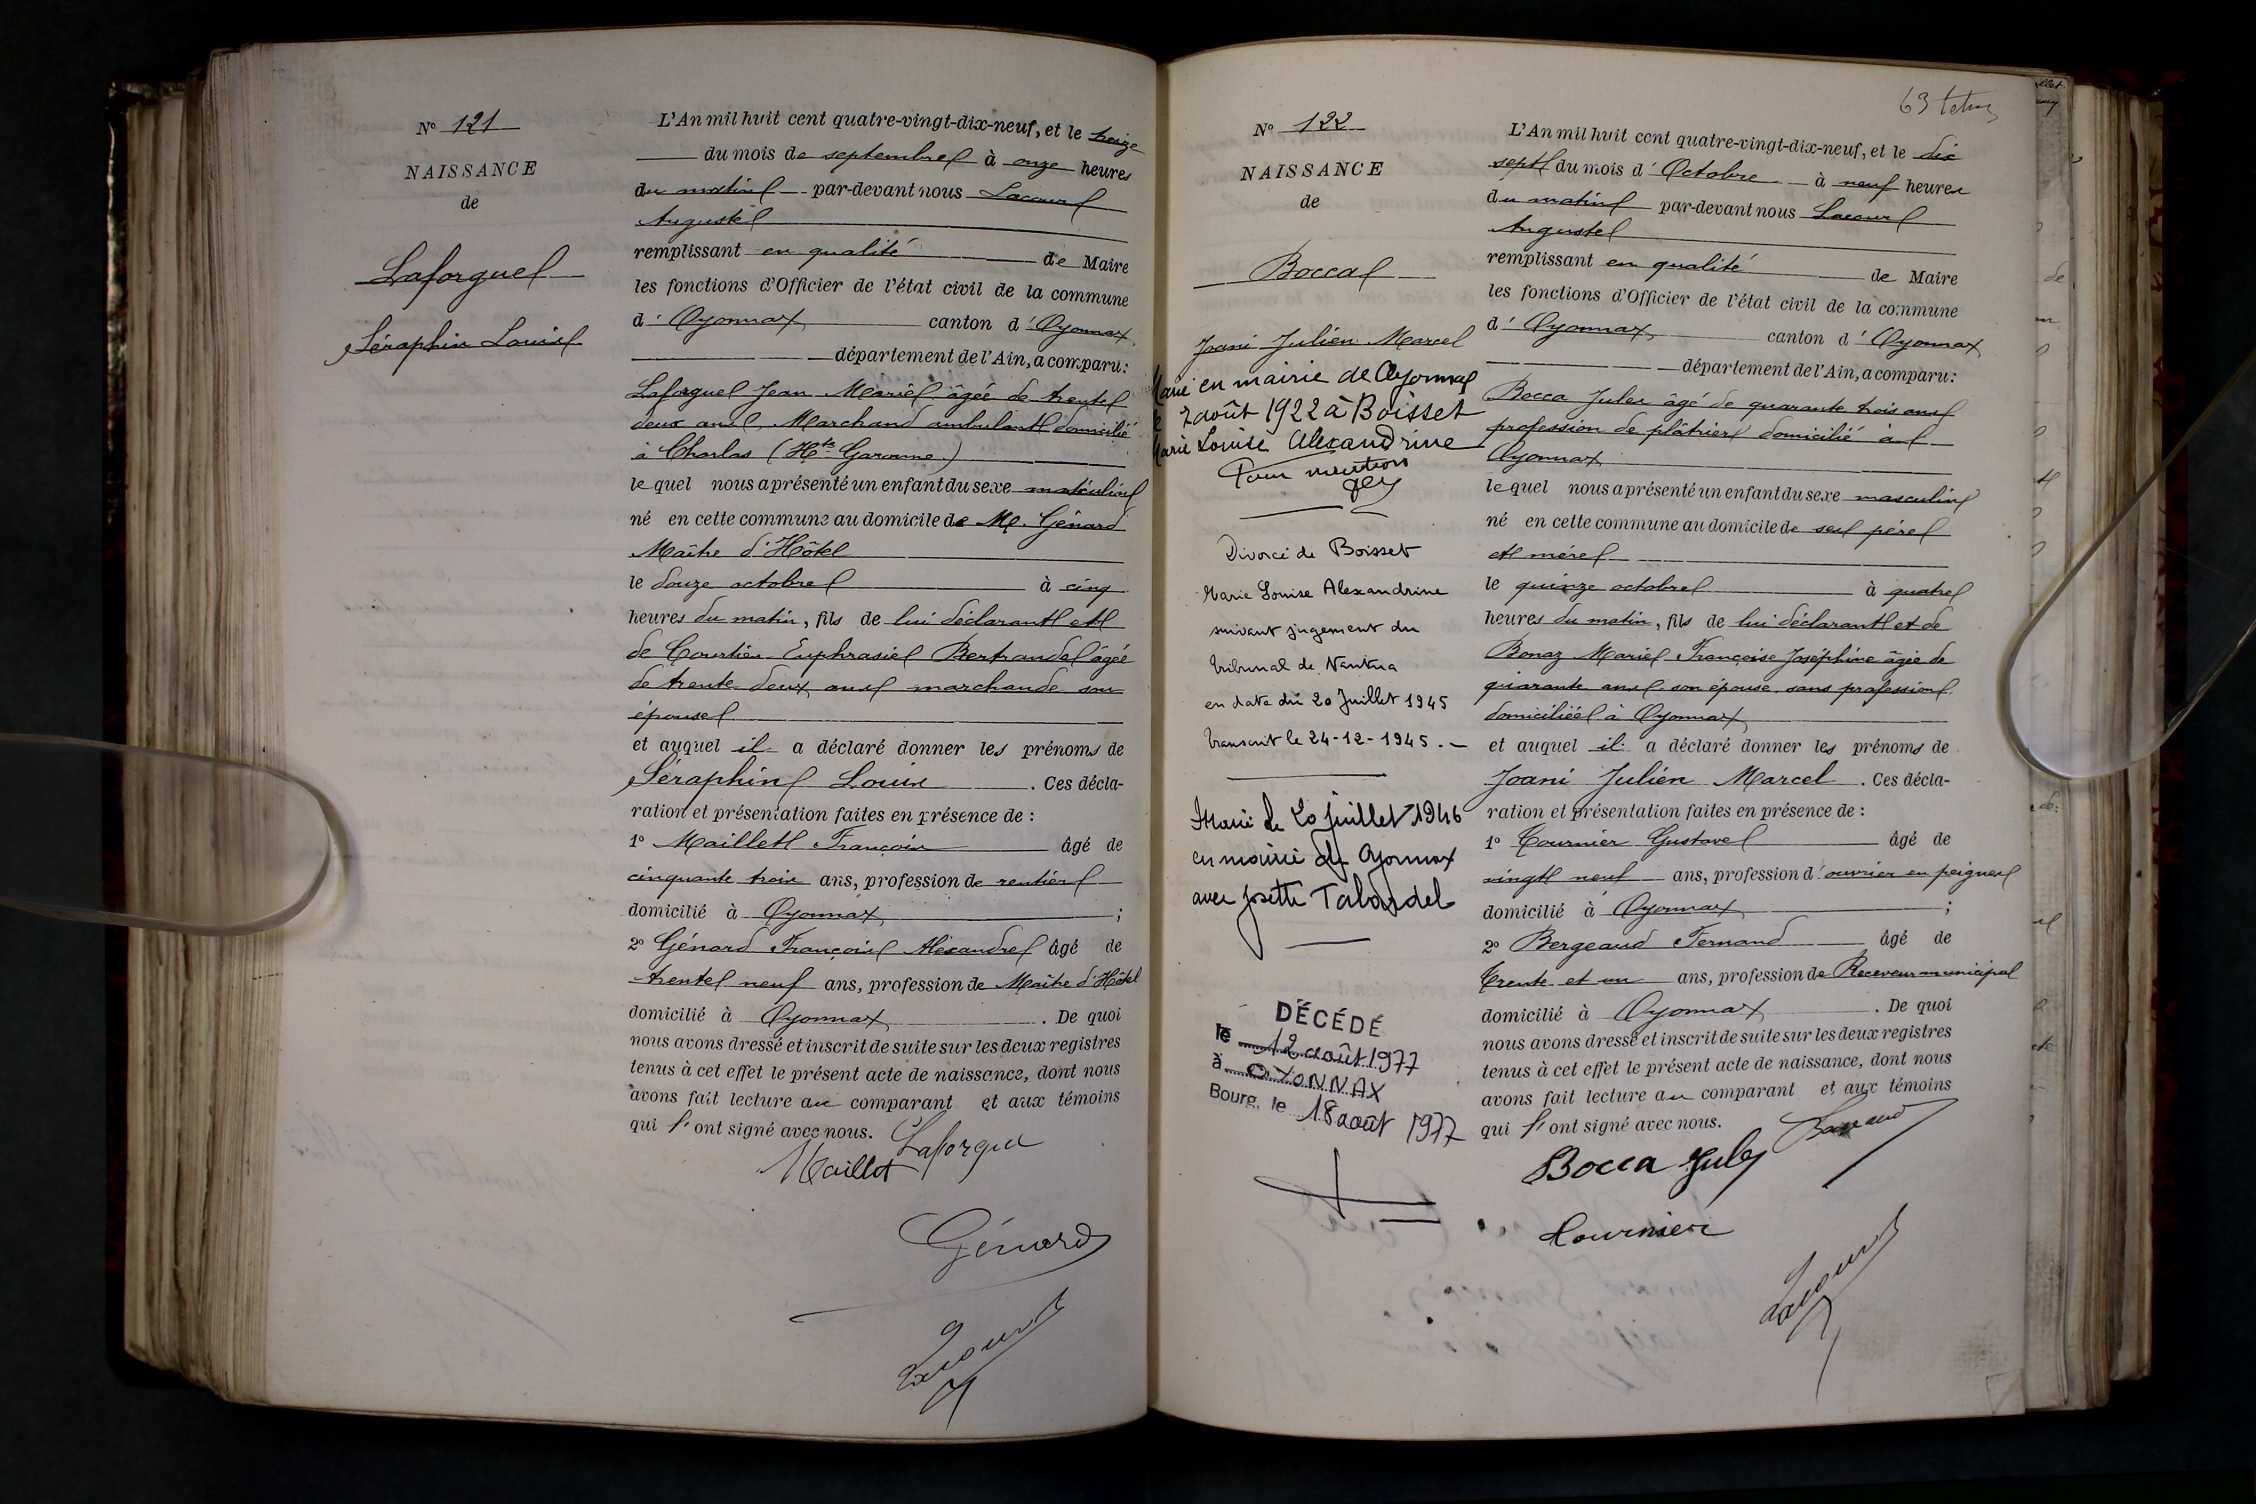 Nº 121
NAISSANCE
de
Laforgue
Séraphin Louis
L'An mil huit cent quatre-vingt-dix-neuf, et le treize
du mois de septembre à onze heures
du matin par-devant nous Lacour
Auguste
remplissant en qualité de Maire
les fonctions d'Officier de l'état civil de la commune
d'Oyonnax canton d'Oyonnax
département de l'Ain, a comparu:
Laforgue Jean Marie âgée de trente
deux ans, Marchand ambulant domicilié
à Charlas (Hte Garonne)
lequel nous a présenté un enfant du sexe masculin
né en cette commune au domicile de Mr. Génard
Maître d'Hôtel
le douze octobre à cinq
heures du matin, fils de lui déclarant et
de Euphrasie Bertrande âgée
de trente deux ans marchande son
épouse
et auquel il a déclaré donner les prénoms de
Séraphin Louis . Ces décla-
ration et présentation faites en présence de :
1º Maillet François âgé de
cinquante trois ans, profession de rentier
domicilié à Oyonnax ;
2º Génard François Alexandre âgé de
trente neuf ans, profession de Maître d'Hôtel
domicilié à Oyonnax . De quoi
nous avons dressé et inscrit de suite sur les deux registres
tenus à cet effet le présent acte de naissance, dont nous
avons fait lecture au comparant et aux témoins
qui l'ont signé avec nous.
Laforgue
Maillet
Génard
Lacour
63
Nº 122
NAISSANCE
de
Bocca
Joani Julien Marcel
Marié en mairie de Oyonnax
le 7 août 1922 à Boisset
Marie Louise Alexandrine
Pour mention
Divorcé de Boisset
Marie Louise Alexandrine
suivant jugement du
Tribunal de Nantua
en date du 20 Juillet 1945
Transcrit le 24-12-1945.-
Marié le 20 juillet 1946
en mairie de Oyonnax
avec Josette Tabardel
DÉCÉDÉ
le 12 août 1977
à OYONNAX
Bourg, le 18 août 1977
L'An mil huit cent quatre-vingt-dix-neuf, et le dix
sept du mois d'Octobre à neuf heures
du matin par-devant nous Lacour
Auguste
remplissant en qualité de Maire
les fonctions d'Officier de l'état civil de la commune
d'Oyonnax canton d'Oyonnax
département de l'Ain, a comparu:
Bocca Jules âgé de quarante trois ans
profession de plâtrier domicilié à
Oyonnax
lequel nous a présenté un enfant du sexe masculin
né en cette commune au domicile de ses père
et mère
le quinze octobre à quatre
heures du matin, fils de lui déclarant et de
Bonaz Marie Françoise Joséphine âgée de
quarante ans son épouse, sans profession
domiciliée à Oyonnax
et auquel il a déclaré donner les prénoms de
Joani Julien Marcel . Ces décla-
ration et présentation faites en présence de :
1º Tournier Gustave âgé de
vingt neuf ans, profession d'ouvrier en peignes
domicilié à Oyonnax ;
2º Bergeaud Fernand âgé de
Trente et un ans, profession de Receveur municipal
domicilié à Oyonnax . De quoi
nous avons dressé et inscrit de suite sur les deux registres
tenus à cet effet le présent acte de naissance, dont nous
avons fait lecture au comparant et aux témoins
qui l'ont signé avec nous.
Bergeaud
Bocca Jules
Tournier
Lacour